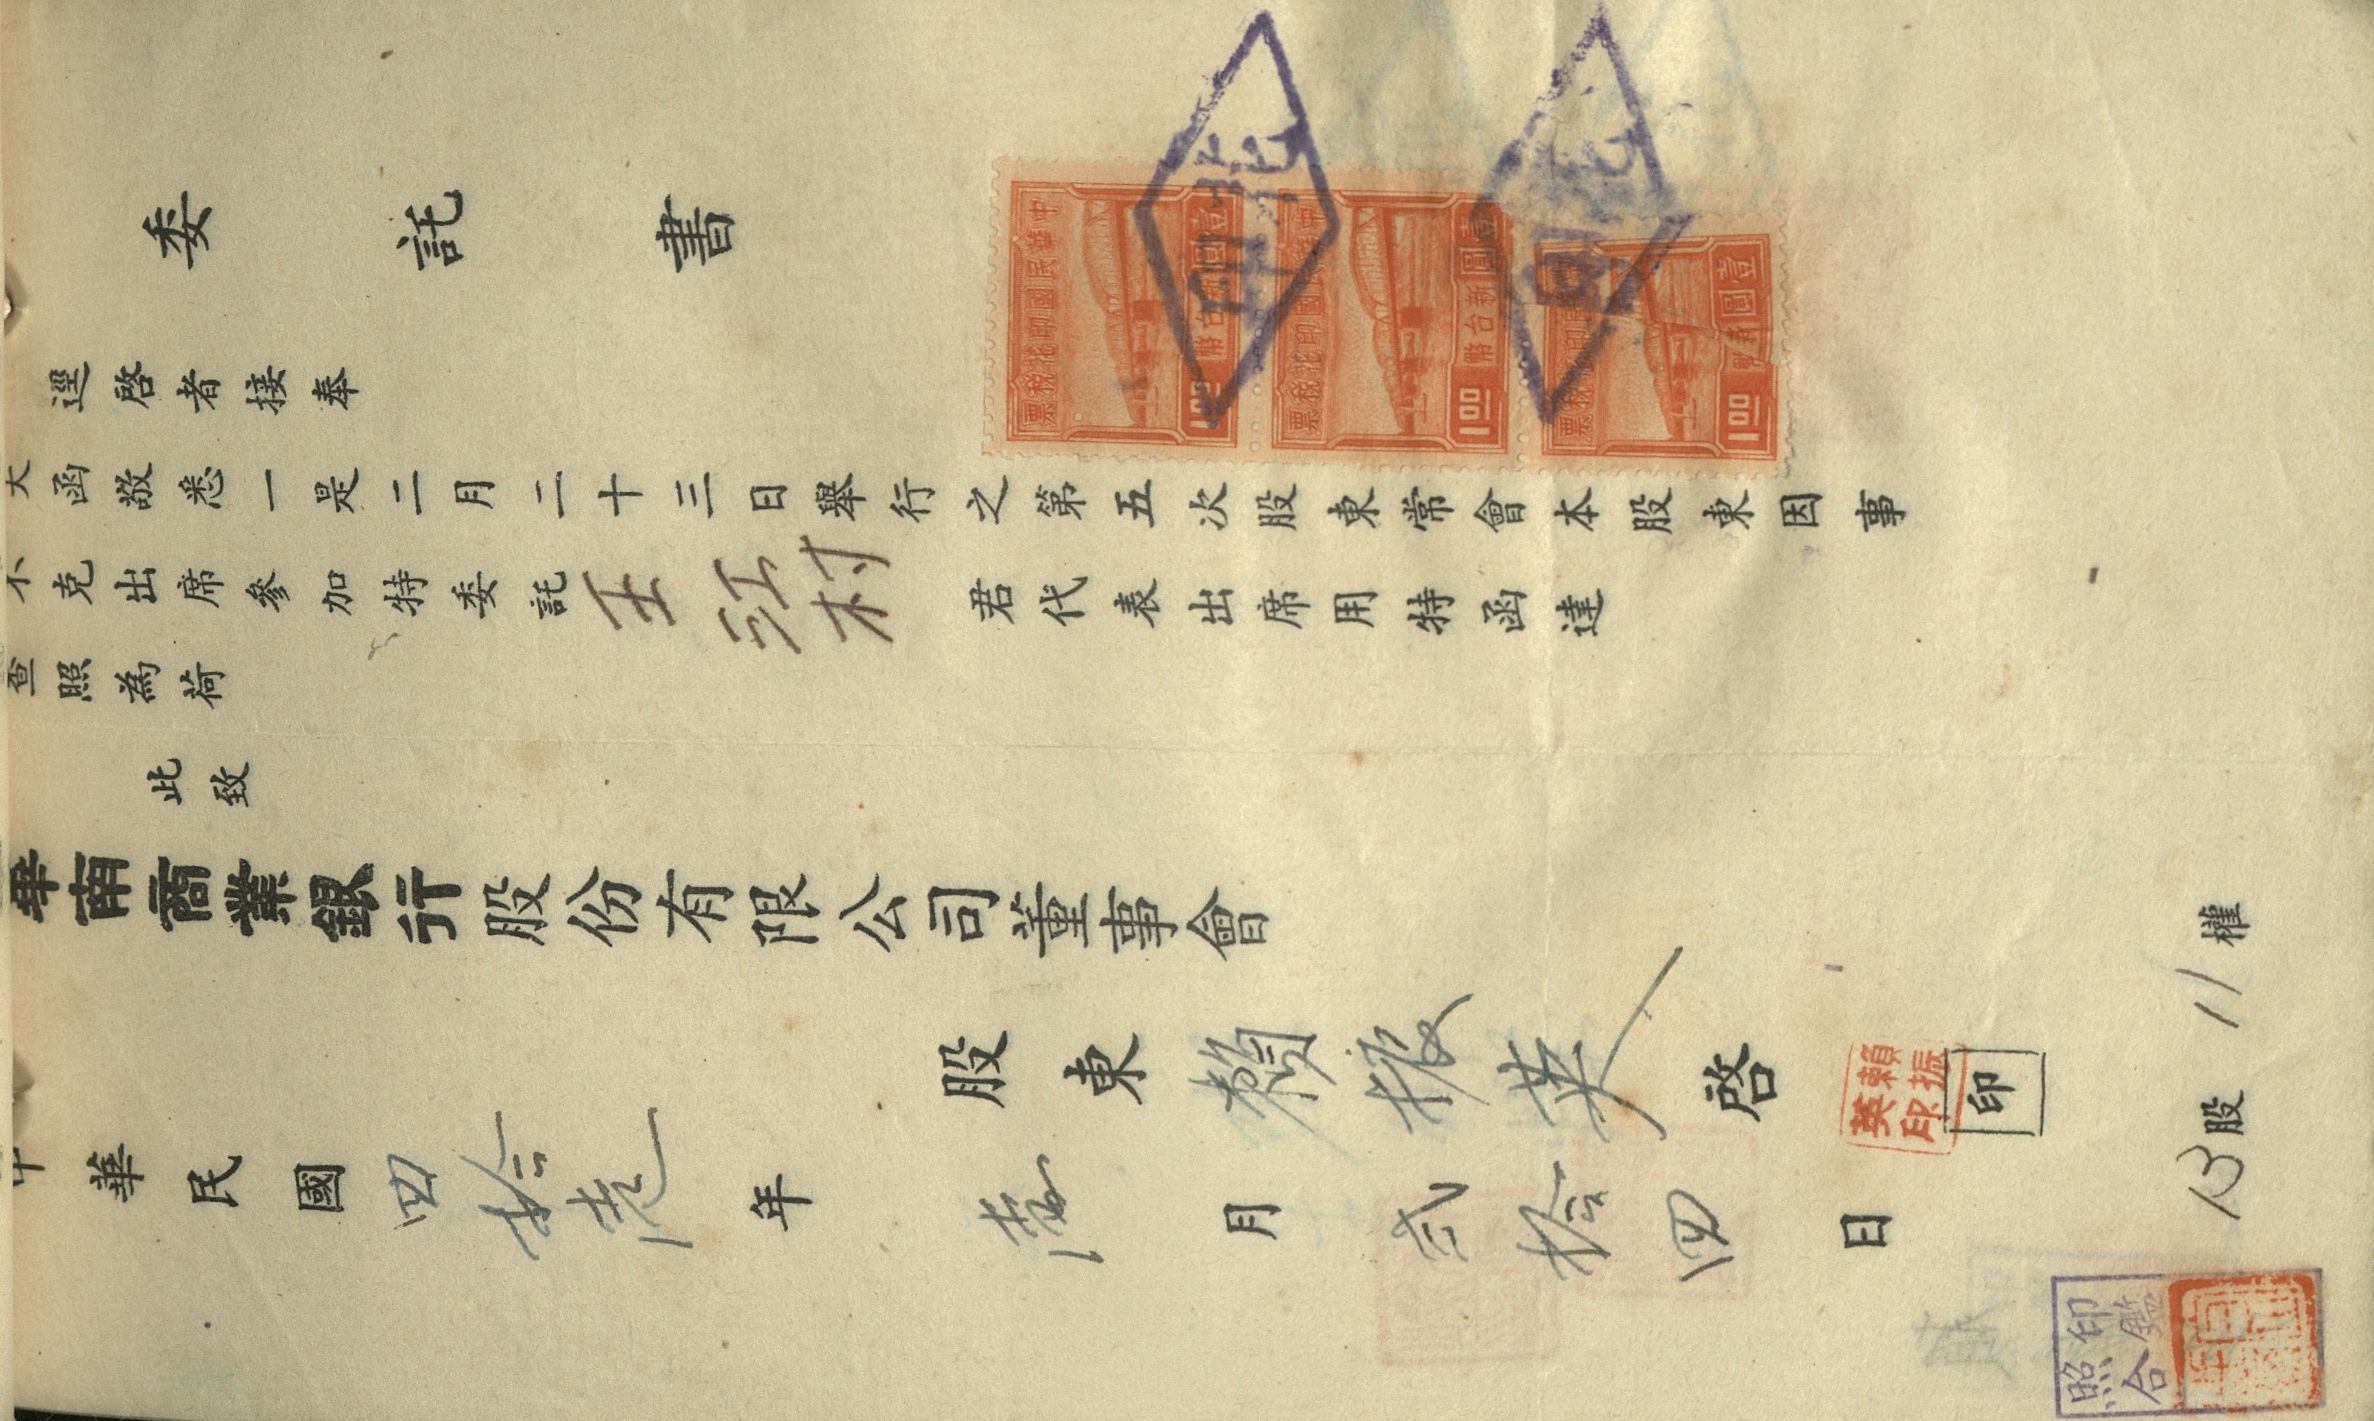 委託書
逕啓者接奉
大函敬悉一是二月二十三日舉行之第五次股東常會本股東因事
不克出席參加特委託王江村君代表出席用特函達
查照為荷
此致
華南商業銀行股份有限公司董事會
股東賴振英啓 印
賴振英印
中華民國四拾壱年壱月弍拾四日
13股11權
印鑑照合
中華民國印花稅票
新台幣壹圓
1.00
中華民國印花稅票
新台幣壹圓
1.00
印花稅票
壹圓
1.00